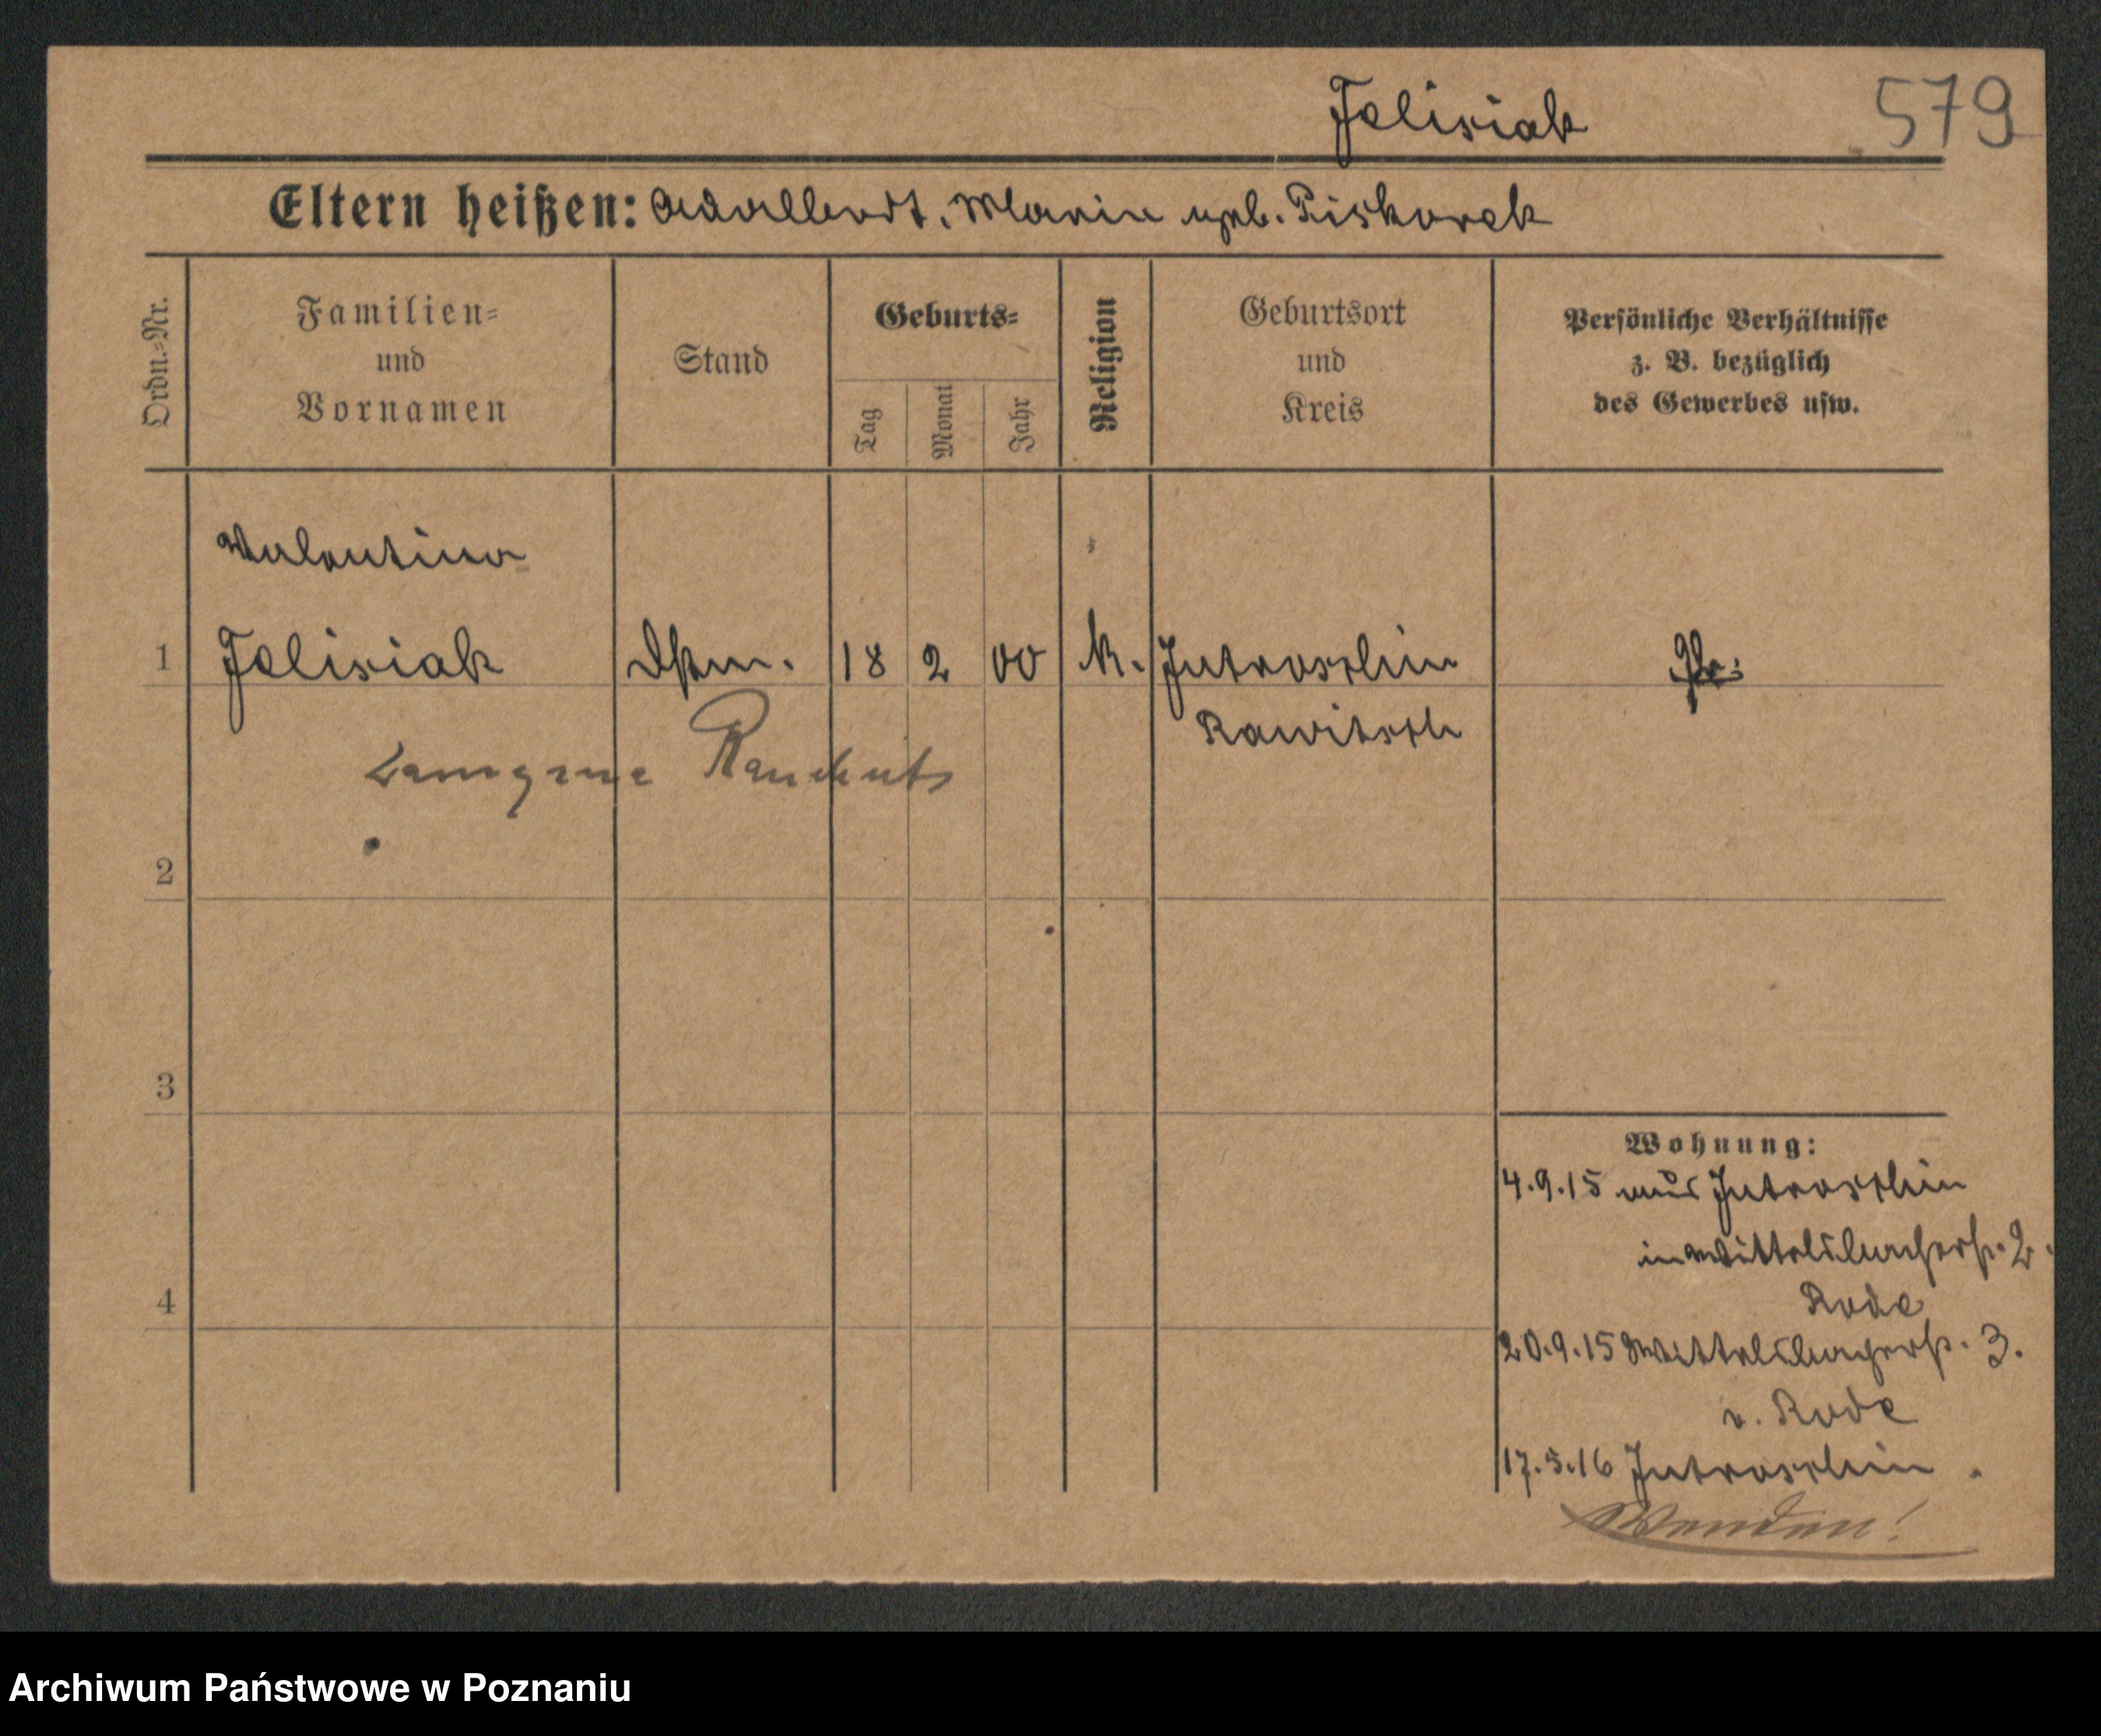 Felisiak 579
Eltern heißen: Adalbert, Maria geb. Piskorek
Ordn.-Nr.
Familien- und Vornamen
Stand
Geburts-
Tag
Monat
Jahr
Religion
Geburtsort und Kreis
Persönliche Verhältnisse
z. B. bezüglich
des Gewerbes usw.
Valentina
1 Felisiak Dstm. 18 2 00 K. Jutroschin Pr.
Rawitsch
2
3
Wohnung:
4.9.15 aus Jutroschin
in Wittelsbacherstr. 2.
4 Rode
20.9.15 Wittelsbacherstr. 3.
v. Rode
17.5.16 Jutroschin
Wenden!
Archiwum Państwowe w Poznaniu